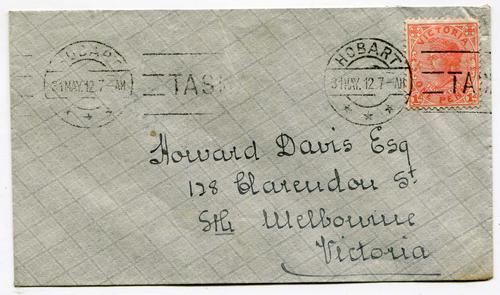 HOBART
31 MAY. 12. 7- AM
TAS
HOBART
31 MAY. 12. 7- AM
TA
VICTORIA
Howard Davis Esq
128 Clarendon St
Sth Melbourne
Victoria